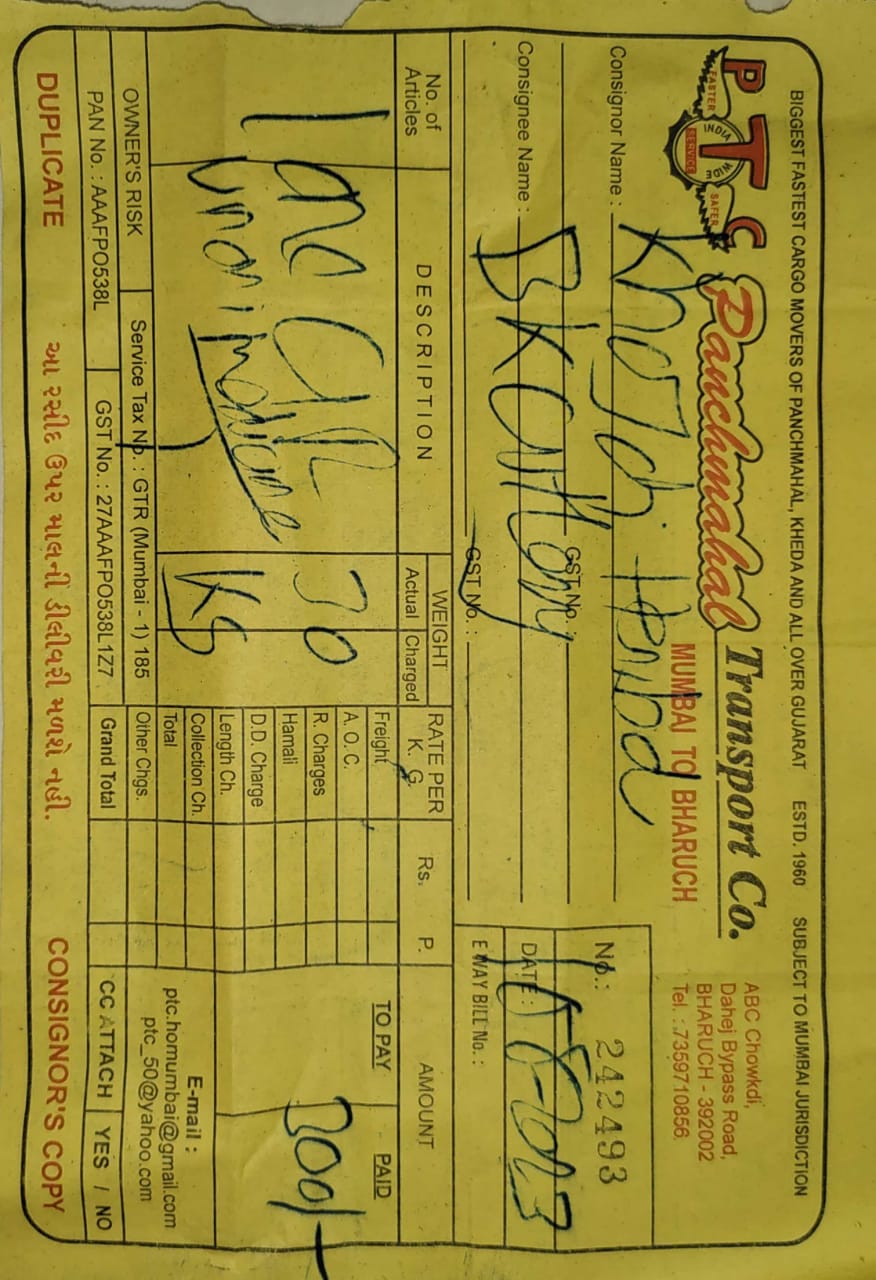 BIGGEST FASTEST CARGO MOVERS OF PANCHMAHAL, KHEDA AND ALL OVER GUJARAT ESTD. 1960 SUBJECT TO MUMBAI JURISDICTION
PTC
FASTER INDIA WIDE SERVICE SAFER
Panchmahal Transport Co.
MUMBAI TO BHARUCH
ABC Chowkdi,
Dahej Bypass Road,
BHARUCH - 392002
Tel. : 7359710856
Consignor Name :
GST No. :
No. : 242493
Consignee Name : BK
GST No. :
DATE :
E WAY BILL No. :
No. of Articles DESCRIPTION WEIGHT Actual Charged RATE PER K. G. Rs. P. AMOUNT
1
30
KG
Freight
A. O. C.
R. Charges
Hamali
D.D. Charge
Length Ch.
Collection Ch.
Total
Other Chgs.
Grand Total
TO PAY PAID
300/-
E-mail :
ptc.homumbai@gmail.com
ptc_50@yahoo.com
CC ATTACH YES / NO
OWNER'S RISK Service Tax No. : GTR (Mumbai - 1) 185
PAN No. : AAAFPO538L GST No. : 27AAAFPO538L1Z7
DUPLICATE આ રસીદ ઉપર માલની ડીલીવરી મળશે નહી. CONSIGNOR'S COPY